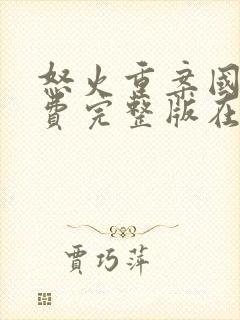 怒火重案國
費完整版在
賈巧萍